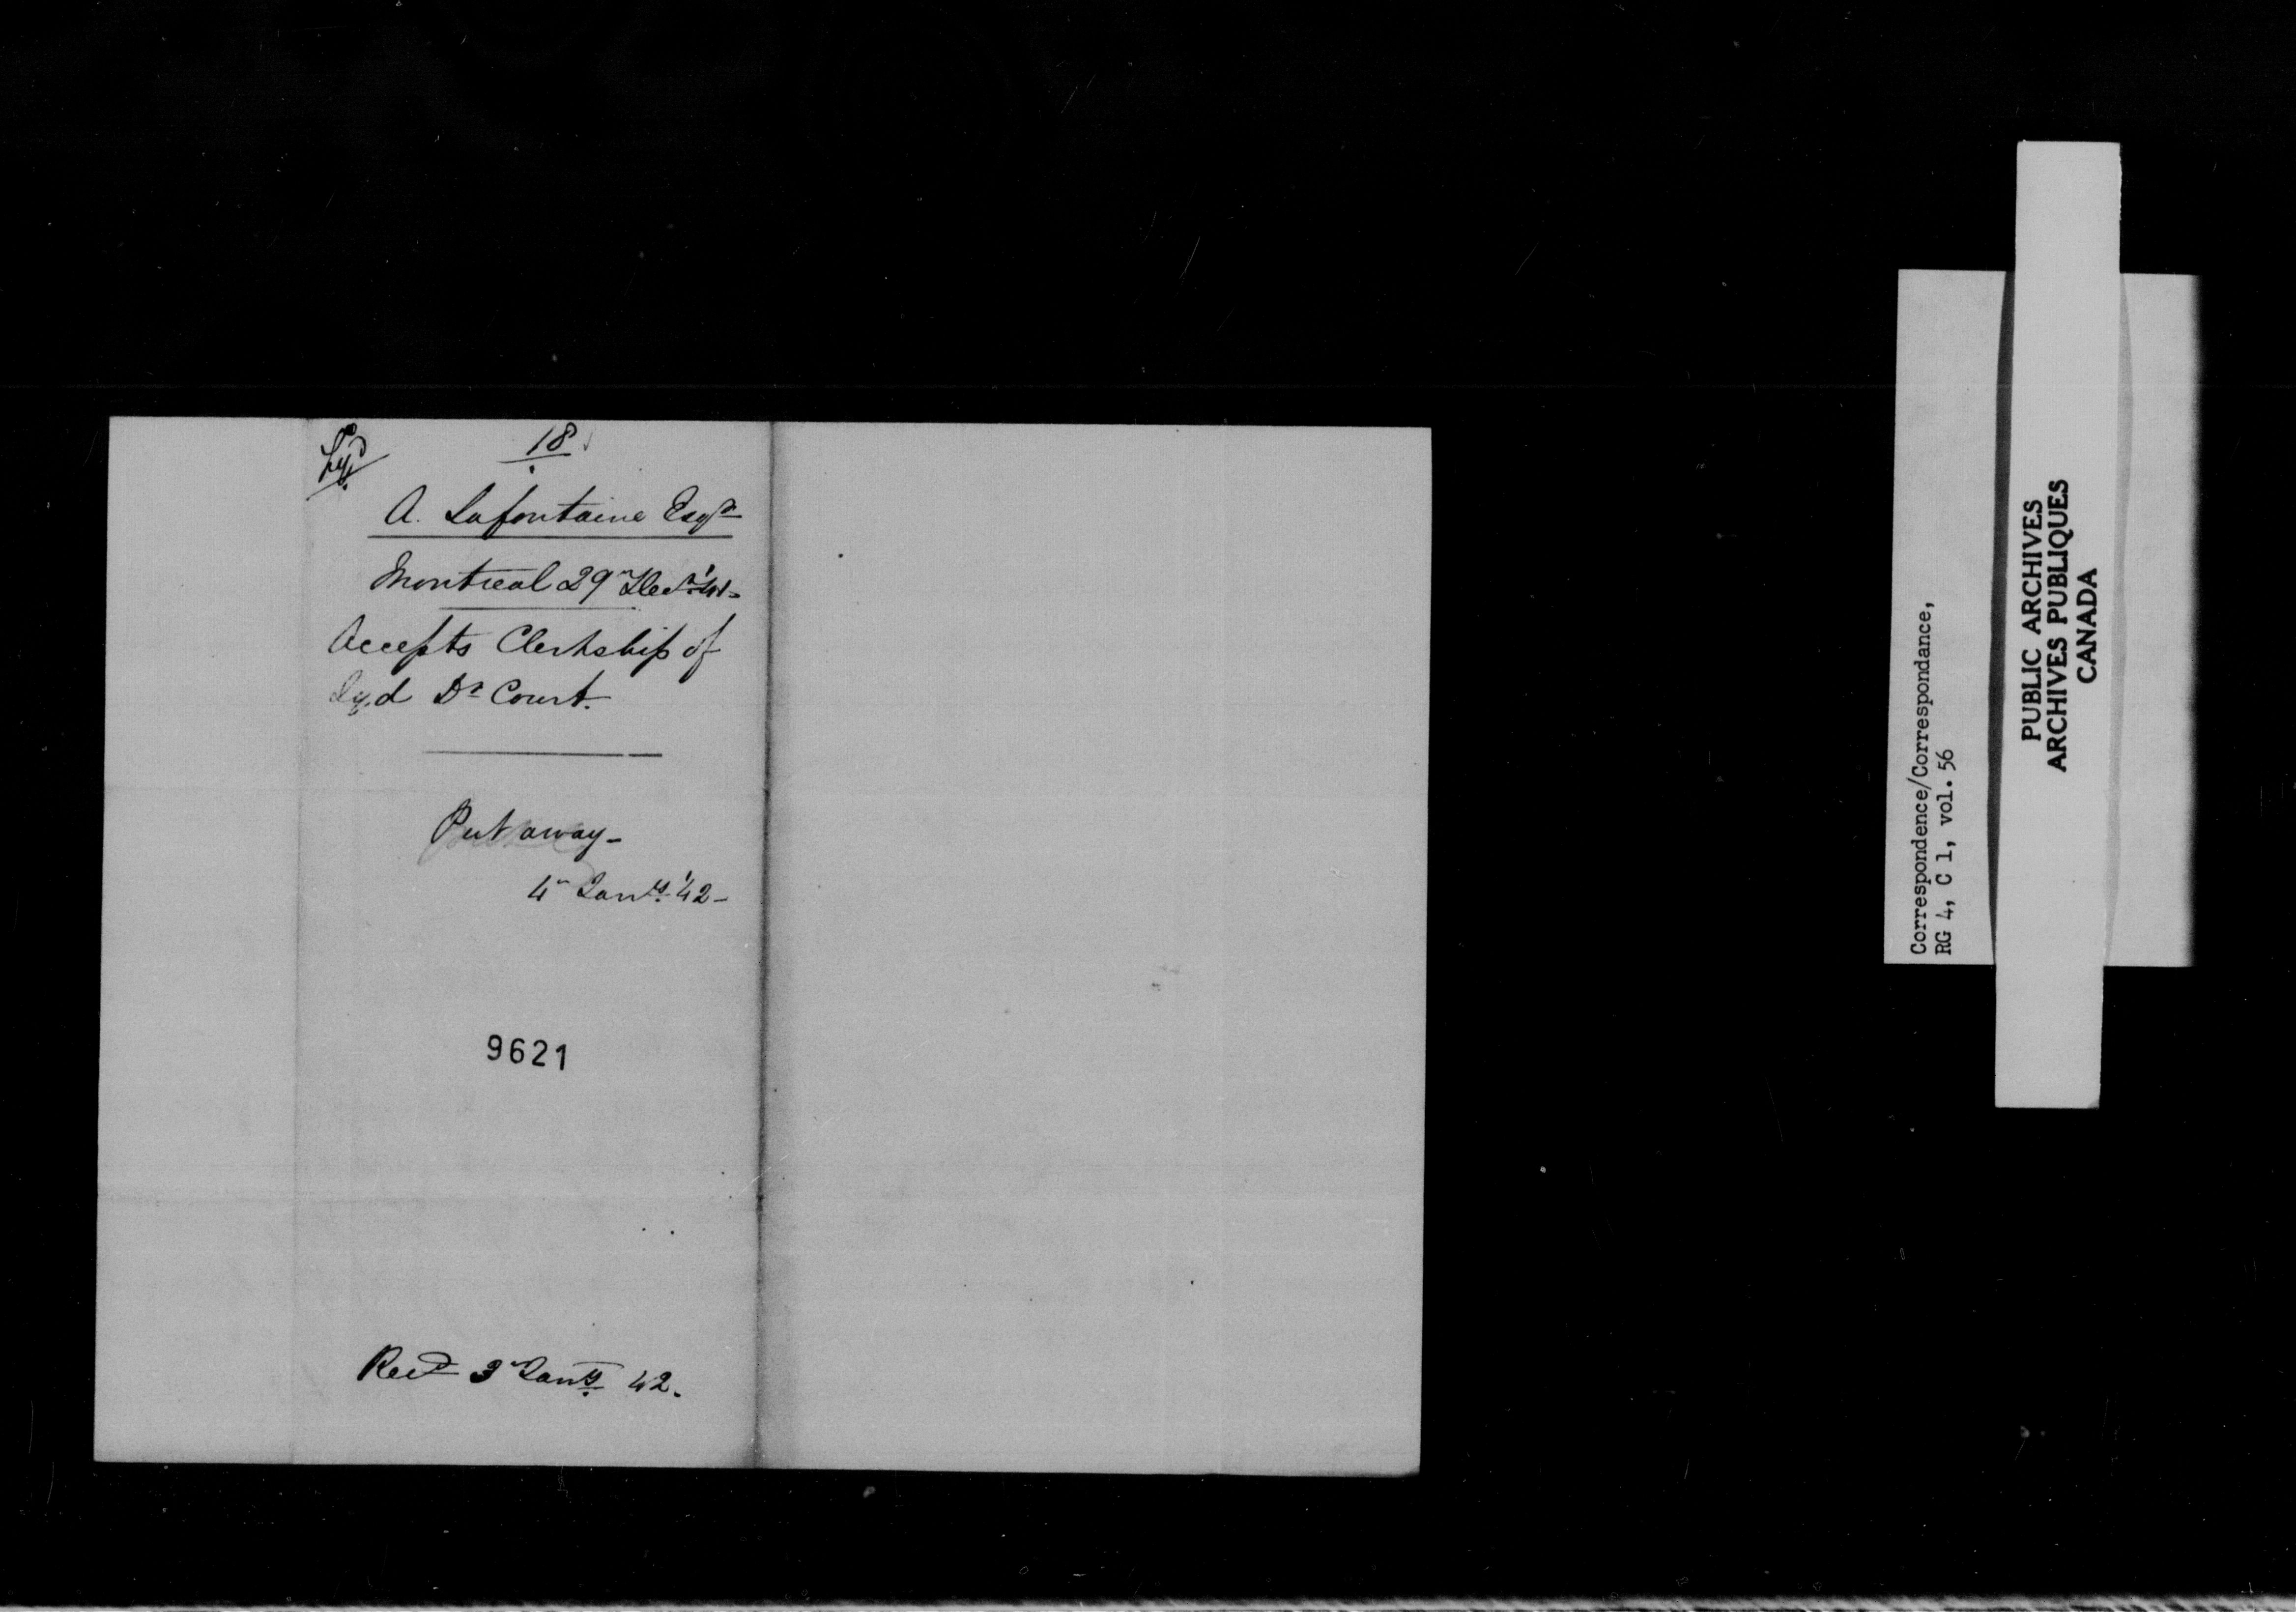 18
A. Lafontaine Esqr
Montreal 29 Decr '41-
Accepts Clerkship of
Dr Court.
Put away-
4 Jany '42-
9621
Recd 3 Jany 42.
Correspondence/Correspondance,
RG 4, C 1, vol. 56
PUBLIC ARCHIVES
ARCHIVES PUBLIQUES
CANADA